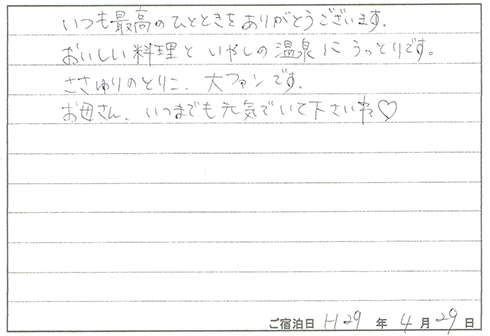 いつも最高のひとときをありがとうございます.
おいしい料理といやしの温泉にうっとりです。
ささゆりのとりこ、大ファンです.
お母さん、いつまでも元気でいて下さいね♡
ご宿泊日 H29 年 4 月 29 日